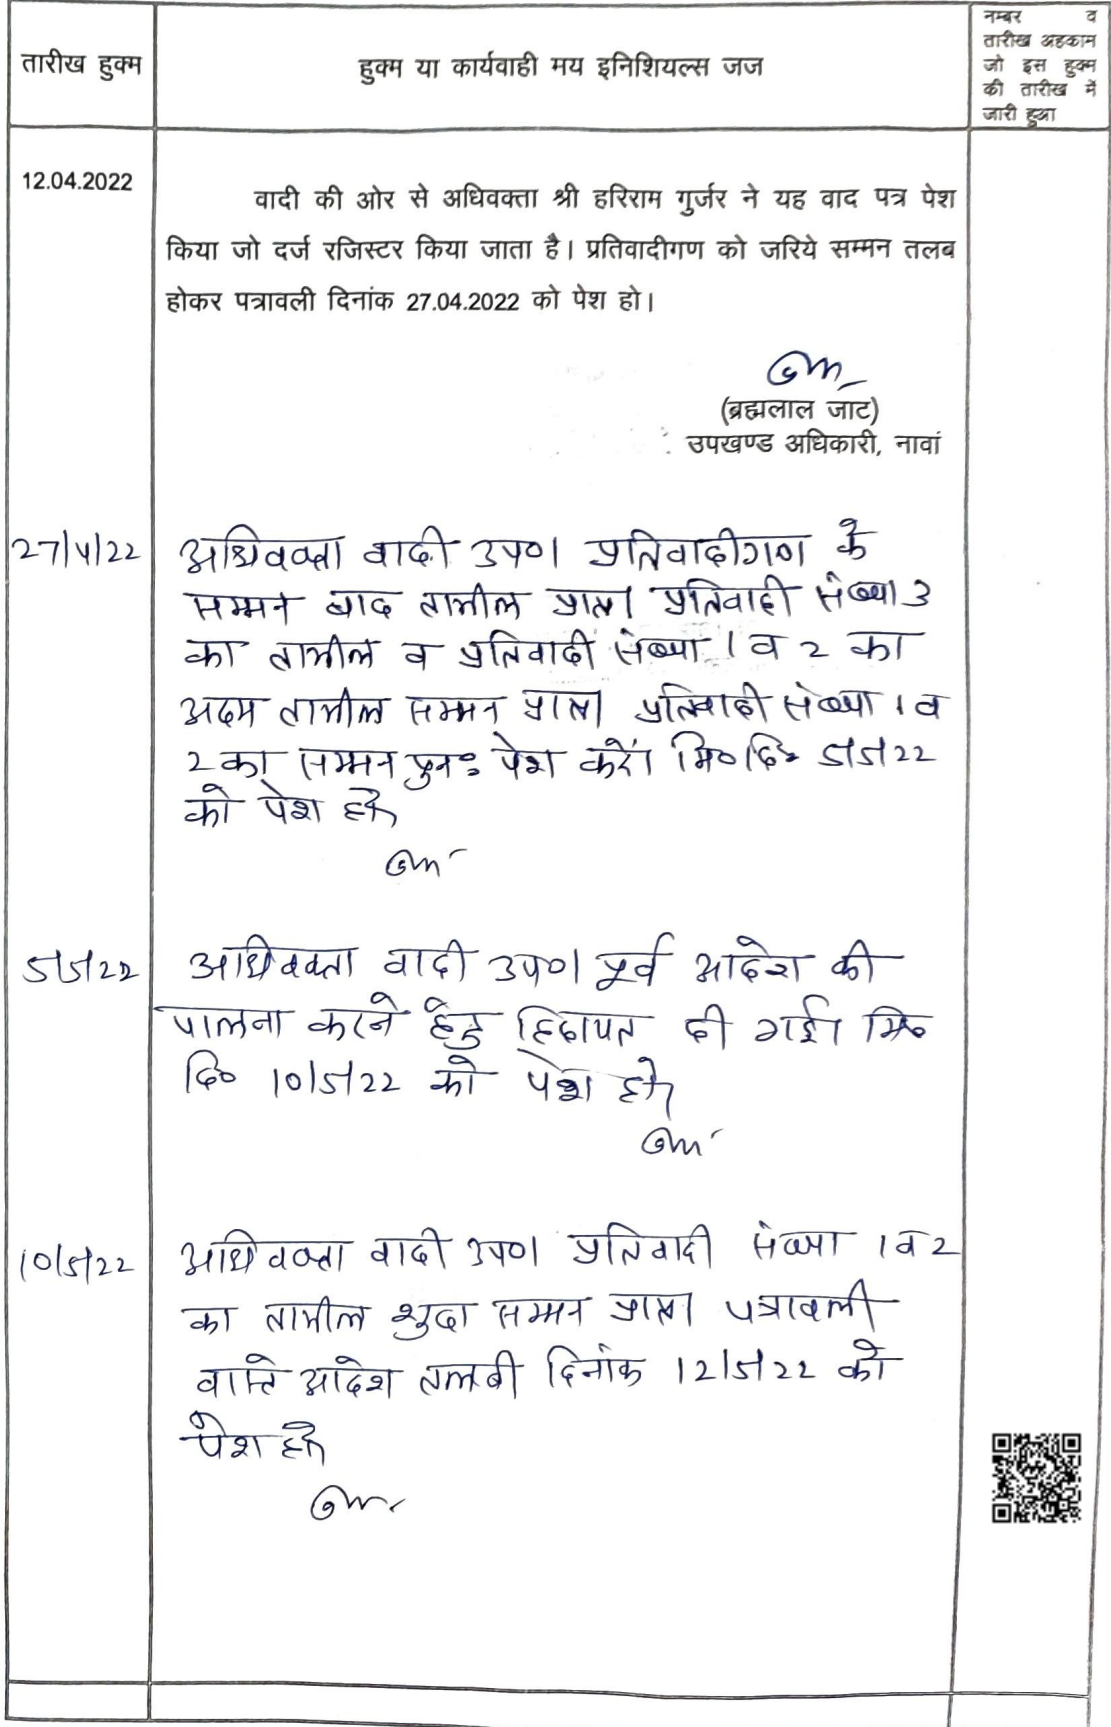 तारीख हुक्म
हुक्म या कार्यवाही मय इनिशियल्स जज
नम्बर व
तारीख अहकाम
जो इस हुक्म
की तारीख में
जारी हुआ
12.04.2022
वादी की ओर से अधिवक्ता श्री हरिराम गुर्जर ने यह वाद पत्र पेश
किया जो दर्ज रजिस्टर किया जाता है। प्रतिवादीगण को जरिये सम्मन तलब
होकर पत्रावली दिनांक 27.04.2022 को पेश हो।
(ब्रह्मलाल जाट)
उपखण्ड अधिकारी, नावां
27/4/22 अधिवक्ता वादी उप०। प्रतिवादीगण के
सम्मन बाद तामील प्राप्त। प्रतिवादी संख्या 3
का तामील व प्रतिवादी संख्या 1 व 2 का
अदम तामील सम्मन प्राप्त। प्रतिवादी संख्या 1 व
2 का सम्मन पुनः पेश करें। मि० दि० 5/5/22
को पेश हो।
5/5/22 अधिवक्ता वादी उप०। पूर्व आदेश की
पालना करने हेतु हिदायत दी गई। मि०
दि० 10/5/22 को पेश हो।
10/5/22 अधिवक्ता वादी उप०। प्रतिवादी संख्या 1 व 2
का तामील शुदा सम्मन प्राप्त। पत्रावली
वास्ते आदेश तलबी दिनांक 12/5/22 को
पेश हो।